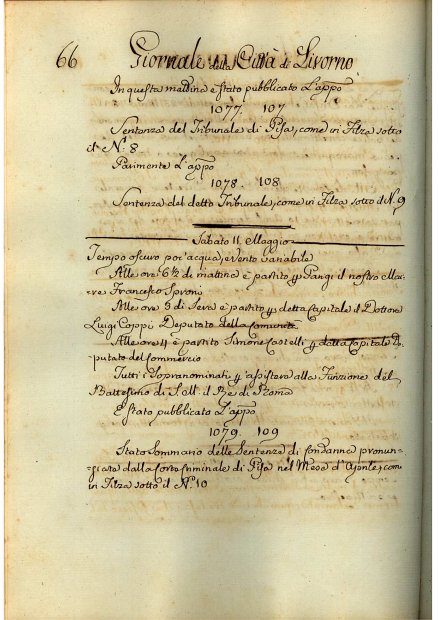 66 Giornale della Città di Livorno
In questa mattina è stato pubblicato L'appo
1077. 107
Sentenza del Tribunale di Pisa, come in Filza sotto
il N.º 8
Parimente L'appo
1078. 108
Sentenza del detto Tribunale, come in Filza sotto il N. 9
Sabato 11. Maggio
Tempo oscuro poi acqua, e vento variabile
Alle ore 6½ di mattina è partito p Parigi il nostro Mai-
re Francesco Sproni
Alle ore 5 di Sera è partito p detta Capitale il Dottore
Luigi Coppi Deputato della Comunità
Alle ore 4 è partito Simone Castelli p detta Capitale De-
putato del Commercio
Tutti i Sopranominati p assistere alla Funzione del
Battesimo di S. M. il Re di Roma
È stato pubblicato L'appo
1079. 109
Stato Sommario delle Sentenze di Condanna pronun-
=ziate dalla Corte Criminale di Pisa nel Mese d'Aprile, come
in Filza sotto il N.º 10